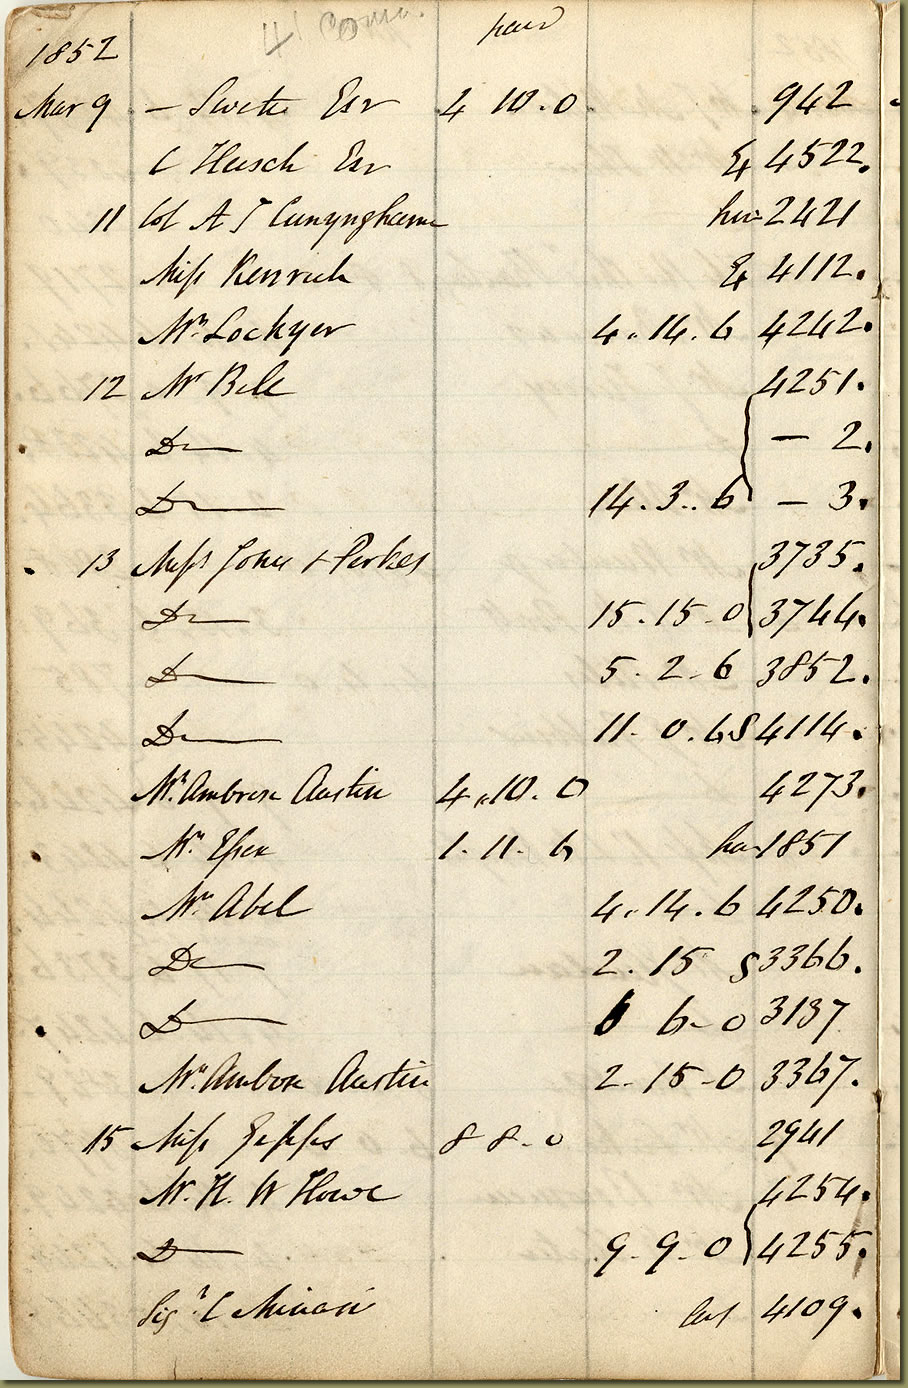 4 Conn.
1852 paid
Mar 9 — Swete Esr 4 10.0 942
C Husch Esr E4 4522.
11 Col A T Cunynghame hire 2421
Miss Kenrick E4 4112.
Mr Lockyer 4.14.6 4242.
12 Mr Bell 4251.
Do — 2.
Do 14.3..6 — 3.
13 Messrs Jones & Perkes 3735.
Do 15.15.0 3744.
Do 5.2.6 3852.
Do 11.0.6 S 4114.
Mr Ambrose Austin 4.10.0 4273.
Mr 1.11.6 1851
Mr Abel 4.14.6 4250.
Do 2.15 S 3366.
Do 6 6-0 3137
Mr Ambose Austin 2-15-0 3367.
15 Miss Jepps 8 8-0 2941
Mr. H. W Howe 4254.
Do 9-9-0 4255.
Sigr C Minasi 4109.